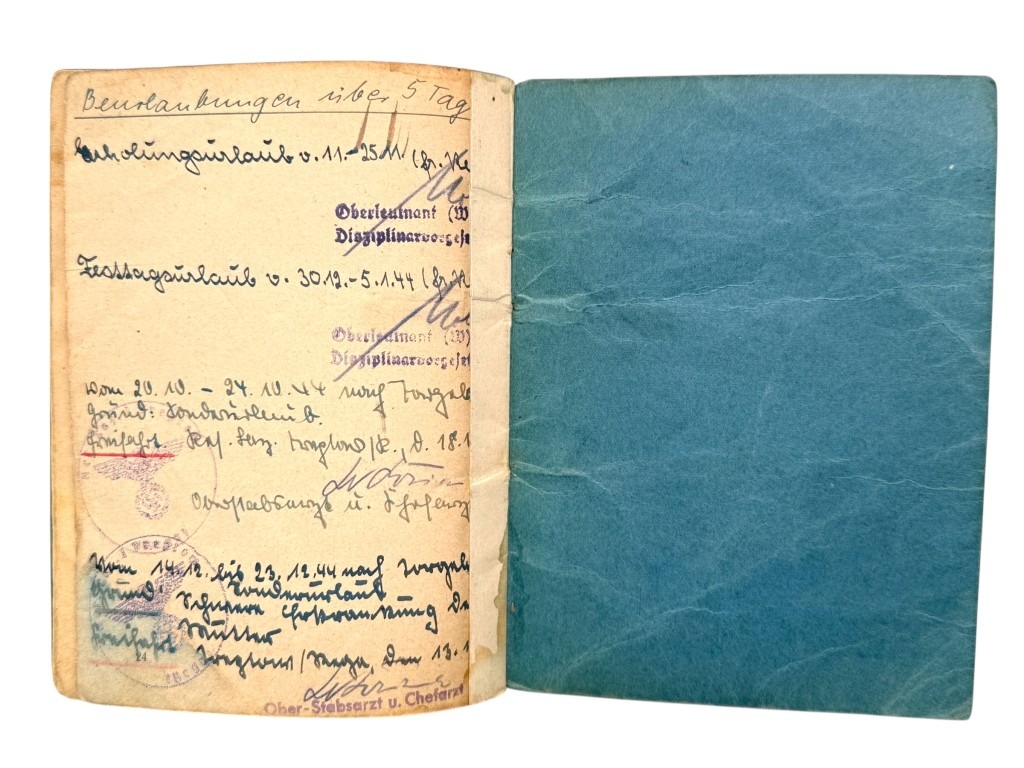 Beurlaubungen über 5 Tag
Erholungsurlaub v. 11.-25.11. (Gr. Ne
Oberleutnant (W
Disziplinarvorgeset
Festtagsurlaub v. 30.12.-5.1.44 (Gr. N
Oberleutnant (W)
Disziplinarvorgeset
vom 20.10. – 24.10.44 nach Torgel
Grund: Sonderurlaub.
Freifahrt. Res. Laz. Treptow/R., d. 18.1
Oberstabsarzt u. Chefarz
Vom 14.12. bis 23.12.44 nach Torgel
Grund: Sonderurlaub
Schwere Erkrankung de
Mutter
Freifahrt
Treptow/Rega, den 13.1
24
Ober-Stabsarzt u. Chefarzt